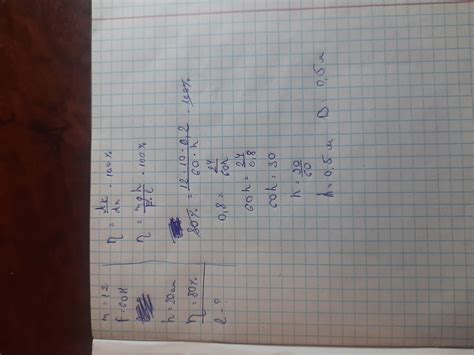 m = 12
F = 60H
h = 20 см
η = 80%
l = ?
η = · 100%
η = mgh / · 100%
80% = 12 · 10 · 0,2 / 60 · h · 100%
0,8 = 24 / 60h
60h = 24 / 0,8
60h = 30
h = 30 / 60
h = 0,5 м В 0,5 м